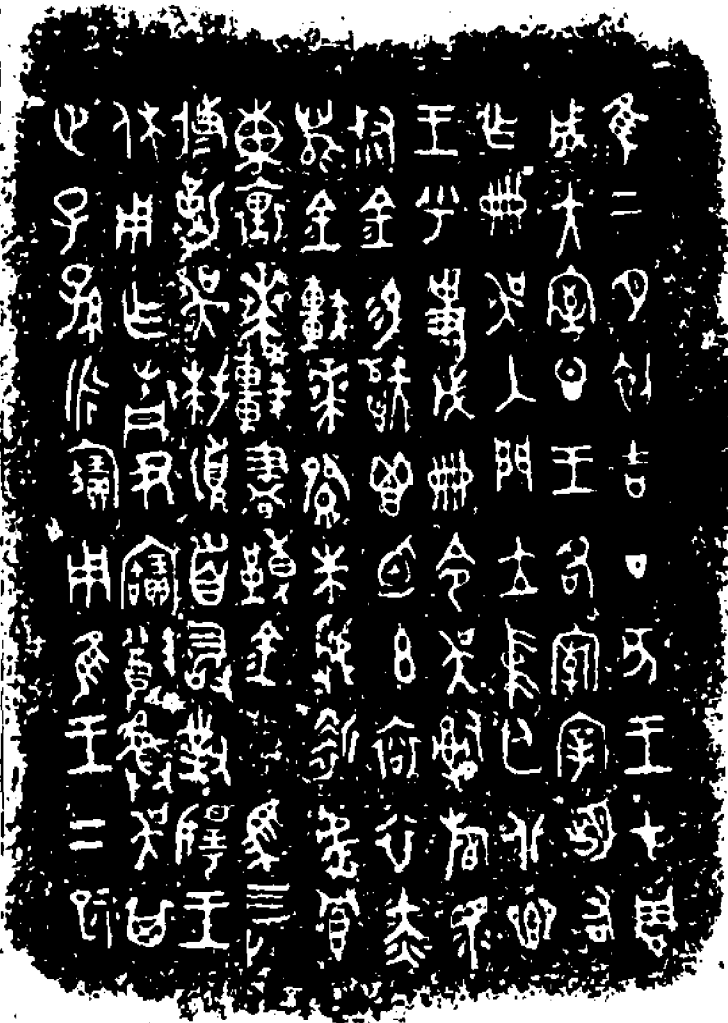 隹二月初吉丁亥王才周
成大室旦王各廟宰朏右
乍冊吳入門立中廷北鄉
王乎史戊冊令吳𤔲旃眔
叔金易秬鬯一卣玄袞衣赤
舄金車𠦪㡇朱虢靳虎冟
熏裏𠦪較畫轉金甬馬四匹
攸勒吳拜稽首敢對揚王
休用乍青尹寶尊彝吳其
世子孫永寶用隹王二祀